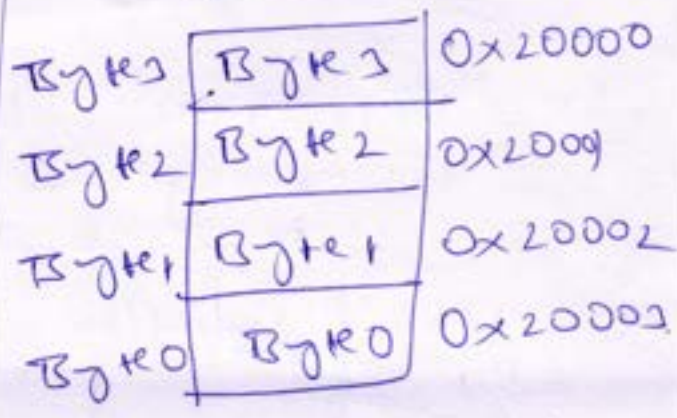 Byte3 Byte3 0x20000
Byte2 Byte2 0x20001
Byte1 Byte1 0x20002
Byte0 Byte0 0x20003